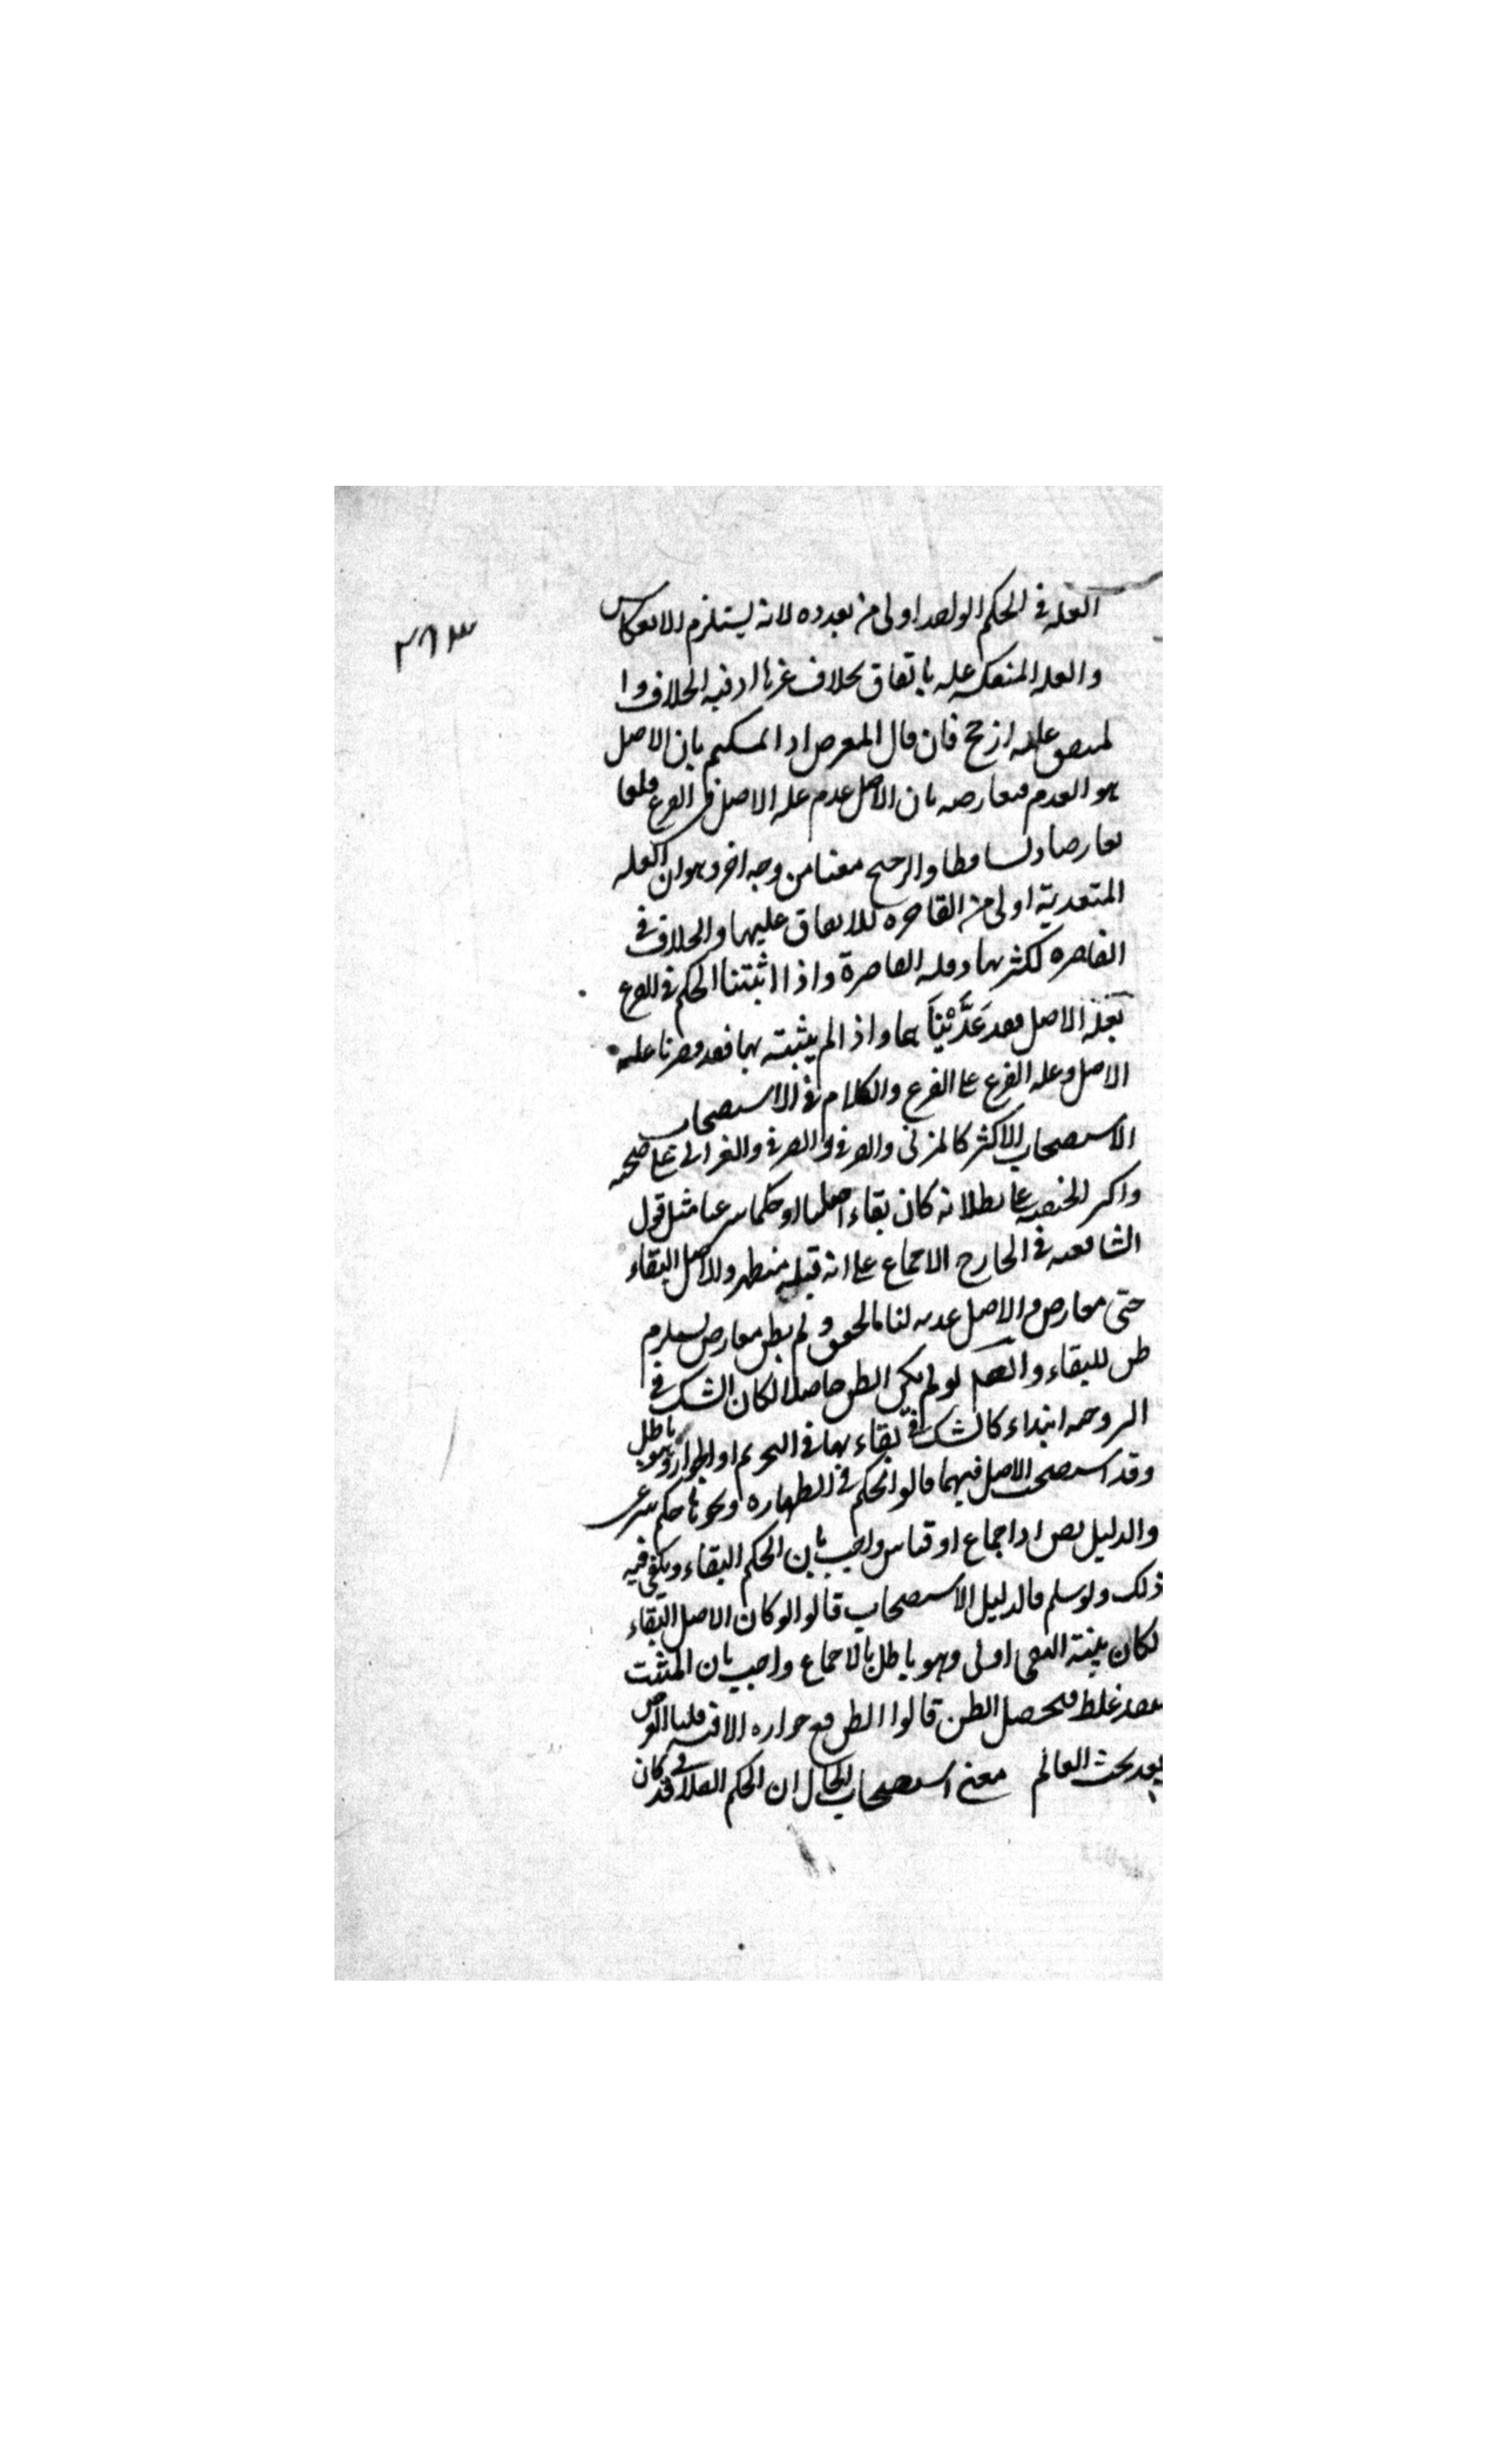 العله في الحكم الواحد اولى من تعدده لانه يستلزم الانعكاس
والعله المنعكسه عليه باتفاق بخلاف غيرها اذ فيه الخلاف وا
لمتفق عليه ارجح فان قال المعرض اد المسكم بان الاصل
هو العدم فيعارضه بان الاصل عدم عله الاصل في الفرع قلنا
تعارضا وتساقطا والترجيح معنا من وجه اخر وهو ان العله
المتعدية اولى من القاصره للاتفاق عليها والخلاف في
القاصره لكثرتها وقله القاصرة واذا اثبتنا الحكم في الفرع
بعلة الاصل فقد عَدَّيْنَا بها واذا لم يثبته بها فقد قصرنا عله
الاصل وعله الفرع على الفرع والكلام في الاستصحاب
الاستصحاب الاكثر كالمزني والصرفي والغزالي على صحته
واكثر الحنفيه على بطلانه كان بقاء اصليا او حكما شرعيا مثل قول
الشافعيه في الخارج الاجماع على انه قبله متطهر والاصل البقاء
حتى معارض والاصل عدمه لنا مالحقق ولم يظن معارض يستلزم
ظن للبقاء وا لو لم يكن الظن حاصلا لكان الشك في
الزوجيه ابتداء كالشك في بقاءها في التحريم او الجواز وهو باطل
وقد استصحب الاصل فيهما قالوا الحكم في الطهاره ونحوها حكم شرعى
والدليل نص او اجماع او قياس واجيب بان الحكم البقاء ويكفى فيه
ذلك ولو سلم فالدليل الاستصحاب قالوا لو كان الاصل البقاء
لكان بينة النفى اولى وهو باطل بالاجماع واجيب بان المثبت
يبعد غلط فيحصل الظن قالوا لا ظن مع جواره الاقيسه قلنا الفرض
بعد بحث العالم معنى استصحاب الحال ان الحكم الفلانى قد كان